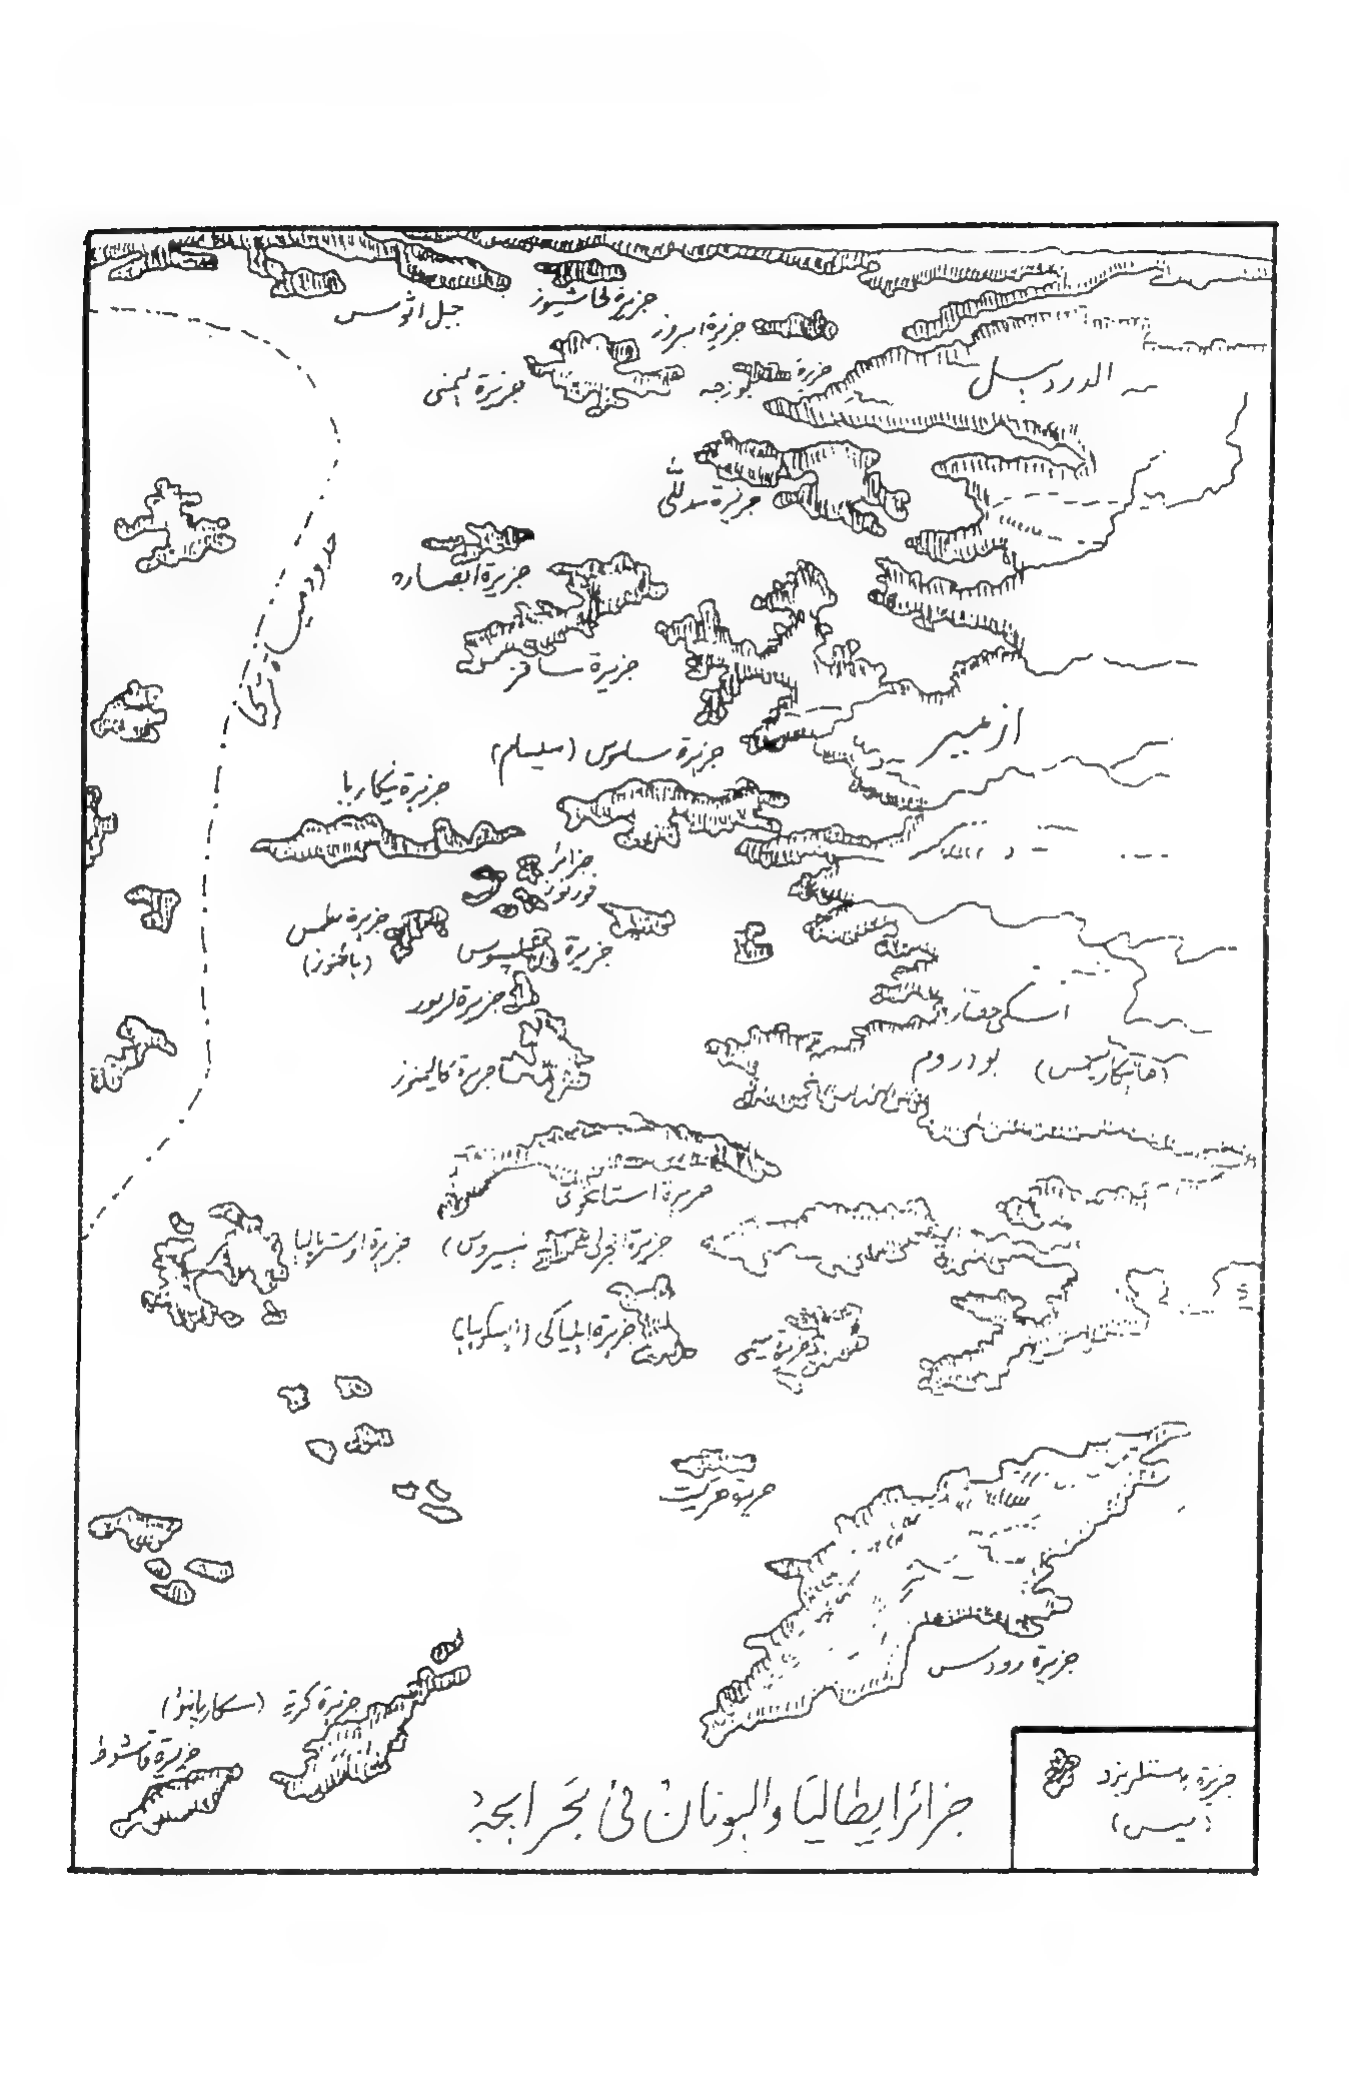 جبل اثوس
جزيرة طاشيوز
جزيرة امروز
جزيرة ليمني
جزيرة بوزجه
الدردنيل
جزيرة مدللي
جزيرة ابصاره
حدود
جزيرة ساقز
ازمير
جزيرة ساموس (سيسام)
جزيرة نيكاريا
جزائر
فورنوز
جزيرة بطمس
(باطنوز)
جزيرة
جزيرة لريوز
جزيرة كاليمنوز
اسكي حصار
بودروم
جزيرة استانكوي
جزيرة اوستربالیا
جزيرة انجرلي
نيسيروس)
جزيرة ايلياكي
جزيرة سيمي
جزيرة خركيت
جزيرة رودس
جزيرة كربه (سكاربانتو)
جزيرة قاشوط
جزائر ايطاليا واليونان في بحر ايجه
جزيرة
(ميس)